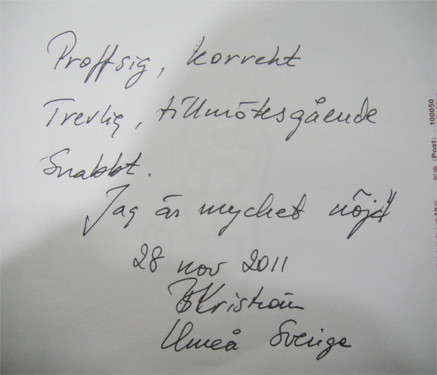 Proffsig, korrekt
Trevlig, tillmötesgående
Snabbt.
Jag är mycket nöjd
28 nov 2011
Umeå Sverige
(Post) 100050